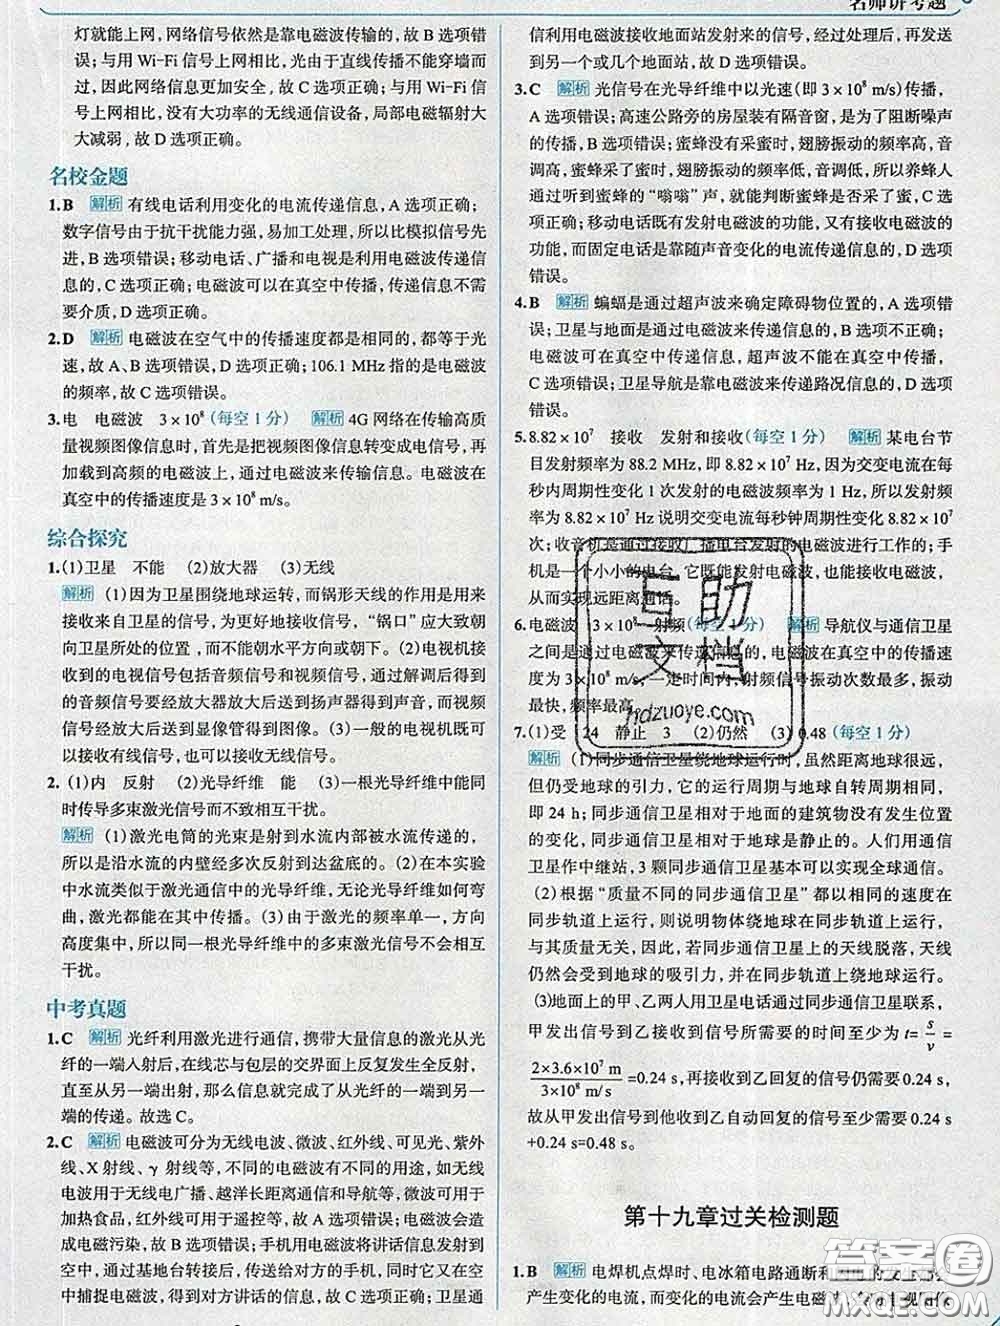 名师讲考题
灯就能上网,网络信号依然是靠电磁波传输的,故 B 选项错
误;与用 Wi-Fi 信号上网相比,光由于直线传播不能穿墙而
过,因此网络信息更加安全,故 C 选项正确;与用 Wi-Fi 信
号上网相比,没有大功率的无线通信设备,局部电磁辐射大
大减弱,故 D 选项正确。
名校金题
1.B 解析 有线电话利用变化的电流传递信息,A 选项正确;
数字信号由于抗干扰能力强,易加工处理,所以比模拟信号先
进,B 选项错误;移动电话、广播和电视是利用电磁波传递信
息的,C 选项正确;电磁波可以在真空中传播,传递信息不需
要介质,D 选项正确。
2.D 解析 电磁波在空气中的传播速度都是相同的,都等于光
速,故 A、B 选项错误,D 选项正确;106.1 MHz 指的是电磁波
的频率,故 C 选项错误。
3.电 电磁波 3×10⁸(每空 1 分) 解析 4G 网络在传输高质
量视频图像信息时,首先是把视频图像信息转变成电信号,再
加载到高频的电磁波上,通过电磁波来传输信息。电磁波在
真空中的传播速度是 3×10⁸ m/s。
综合探究
1.(1)卫星 不能 (2)放大器 (3)无线
解析 (1)因为卫星围绕地球运转,而锅形天线的作用是用来
接收来自卫星的信号,为更好地接收信号,“锅口”应大致朝
向卫星所处的位置,而不能朝水平方向或朝下。(2)电视机接
收到的电视信号包括音频信号和视频信号,通过解调后得到
的音频信号要经放大器放大后送到扬声器得到声音,而视频
信号经放大器放大后送到显像管得到图像。(3)一般的电视机既可
以接收有线信号,也可以接收无线信号。
2.(1)内 反射 (2)光导纤维 能 (3)一根光导纤维中能同
时传导多束激光信号而不致相互干扰。
解析 (1)激光电筒的光束是射到水流内部被水流传递的,
所以是沿水流的内壁经多次反射到达盆底的。(2)在本实验
中水流类似于激光通信中的光导纤维,无论光导纤维如何弯
曲,激光都能在其中传播。(3)由于激光的频率单一,方向
高度集中,所以同一根光导纤维中的多束激光信号不会相互
干扰。
中考真题
1.C 解析 光纤利用激光进行通信,携带大量信息的激光从光
纤的一端入射后,在线芯与包层的交界面上反复发生全反射,
直至从另一端出射,那么信息就完成了从光纤的一端到另一
端的传递。故选 C。
2.C 解析 电磁波可分为无线电波、微波、红外线、可见光、紫外
线、X 射线、γ 射线等,不同的电磁波有不同的用途,如无线
电波用于无线电广播、越洋长距离通信和导航等,微波可用于
加热食品,红外线可用于遥控等,故 A 选项错误;电磁波会
造成电磁污染,故 B 选项错误;手机用电磁波将讲话信息发射到
空中,通过基地台转接后,传送给对方的手机,同时它又在空
中捕捉电磁波,得到对方讲话的信息,故 C 选项正确;卫星通
信利用电磁波接收地面站发来的信号,经过处理后,再发送
到另一个或几个地面站,故 D 选项错误。
3.C 解析 光信号在光导纤维中以光速(即 3×10⁸ m/s)传播,
A 选项错误;高速公路旁的房屋装有隔音窗,是为了阻断噪声
的传播,B 选项错误;蜜蜂没有采蜜时,翅膀振动的频率高,音
调高,蜜蜂采了蜜时,翅膀振动的频率低,音调低,所以养蜂人
通过听到蜜蜂的“嗡嗡”声,就能判断蜜蜂是否采了蜜,C 选
项正确;移动电话既有发射电磁波的功能,又有接收电磁波的
功能,而固定电话是靠随声音变化的电流传递信息的,D 选项
错误。
4.B 解析 蝙蝠是通过超声波来确定障碍物位置的,A 选项错
误;卫星与地面是通过电磁波来传递信息的,B 选项不正确;
电磁波可在真空中传递信息,超声波不能在真空中传播,
C 选项错误;卫星导航是靠电磁波来传递路况信息的,D 选项
错误。
5.8.82×10⁷ 接收 发射和接收(每空 1 分) 解析 某电台节
目发射频率为 88.2 MHz,即 8.82×10⁷ Hz,因为交变电流在每
秒内周期性变化 1 次发射的电磁波频率为 1 Hz,所以发射频
率为 8.82×10⁷ Hz 说明交变电流每秒钟周期性变化 8.82×10⁷
次;收音机是通过接收广播电台发射的电磁波进行工作的;手
机是一个小小的电台,它既能发射电磁波,也能接收电磁波,
从而实现远距离通话。
6.电磁波 3×10⁸ 射频(每空 1 分) 解析 导航仪与通信卫星
之间是通过电磁波来传递信息的,电磁波在真空中的传播速
度为 3×10⁸ m/s,一定时间内,射频信号振动次数最多,振动
最快,频率最高。
7.(1)受 24 静止 3 (2)仍然 (3)0.48(每空 1 分)
解析 (1)同步通信卫星绕地球运行时,虽然距离地球很远,
但仍受地球的引力,它的运行周期与地球自转周期相同,
即 24 h;同步通信卫星相对于地面的建筑物没有发生位置
的变化,同步通信卫星相对于地球是静止的。人们用通信
卫星作中继站,3 颗同步通信卫星基本可以实现全球通信。
(2)根据“质量不同的同步通信卫星”都以相同的速度在
同步轨道上运行,则说明物体绕地球在同步轨道上运行,
与其质量无关,因此,若同步通信卫星上的天线脱落,天线
仍然会受到地球的吸引力,并在同步轨道上绕地球运行。
(3)地面上的甲、乙两人用卫星电话通过同步通信卫星联系,
甲发出信号到乙接收到信号所需要的时间至少为 t=s/v=
2×3.6×10⁷ m/3×10⁸ m/s=0.24 s,再接收到乙回复的信号仍需要 0.24 s,
故从甲发出信号到他收到乙自动回复的信号至少需要 0.24 s
+0.24 s=0.48 s。
第十九章过关检测题
1.B 解析 电焊机点焊时、电冰箱电路通断时
产生变化的电流,而变化的电流会产生电磁波
互助
文档
hdzuoye.com
答案卷